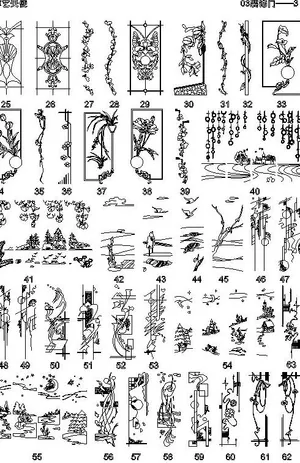 03 门——3
25 26 27 28 29 30 31 32 33
4 35 36 37 38 39 40
41 42 43 44 45 46 47
48 49 50 51 52 53 54 63
55 56 57 58 59 60 61 62